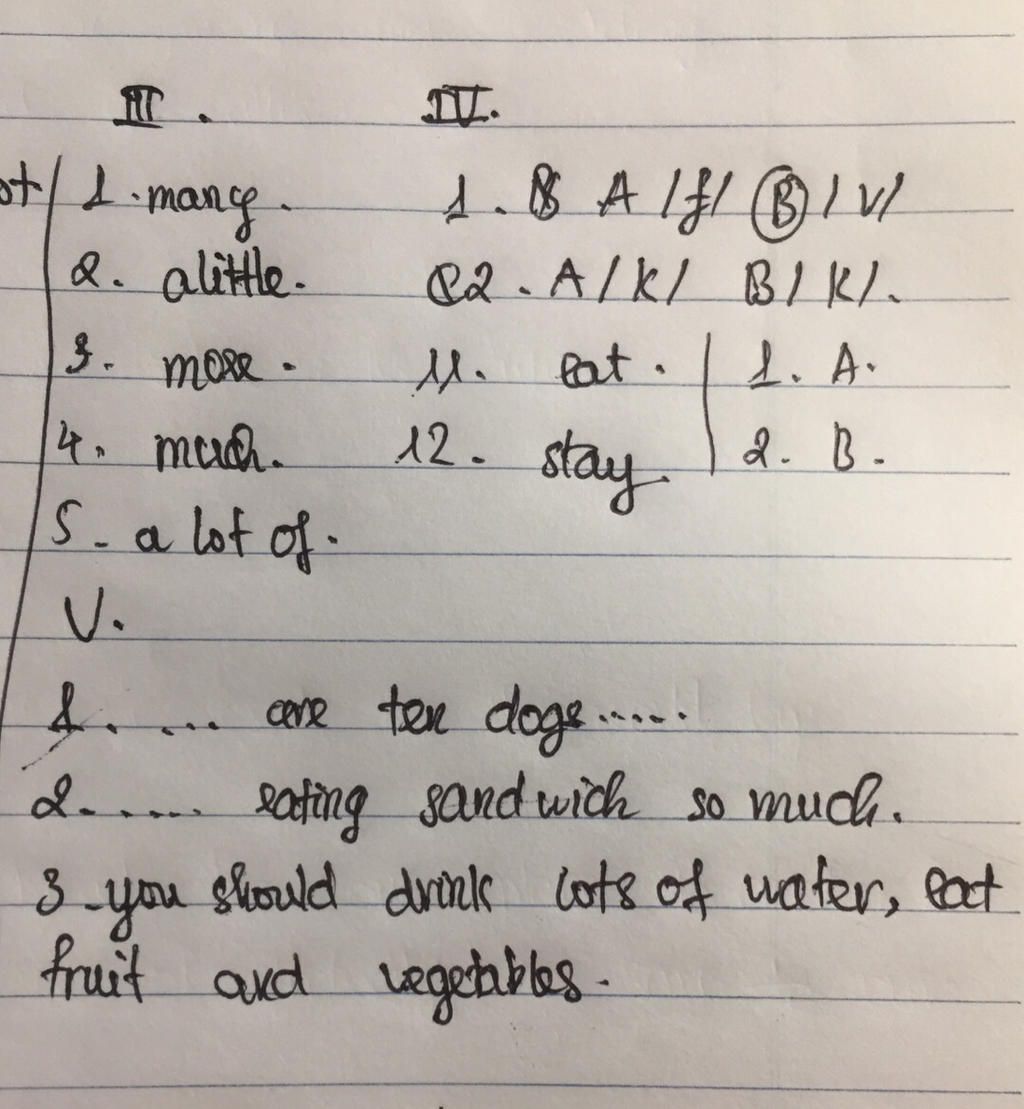 III. IV.
ot 1. many. 1. A /f/ B /v/
2. a little. 2. A /k/ B /k/.
3. more. 11. eat. 1. A.
4. much. 12. stay. 2. B.
5. a lot of.
V.
1. ... are ten dogs.....
2. ..... eating sandwich so much.
3. you should drink lots of water, eat
fruit and vegetables.